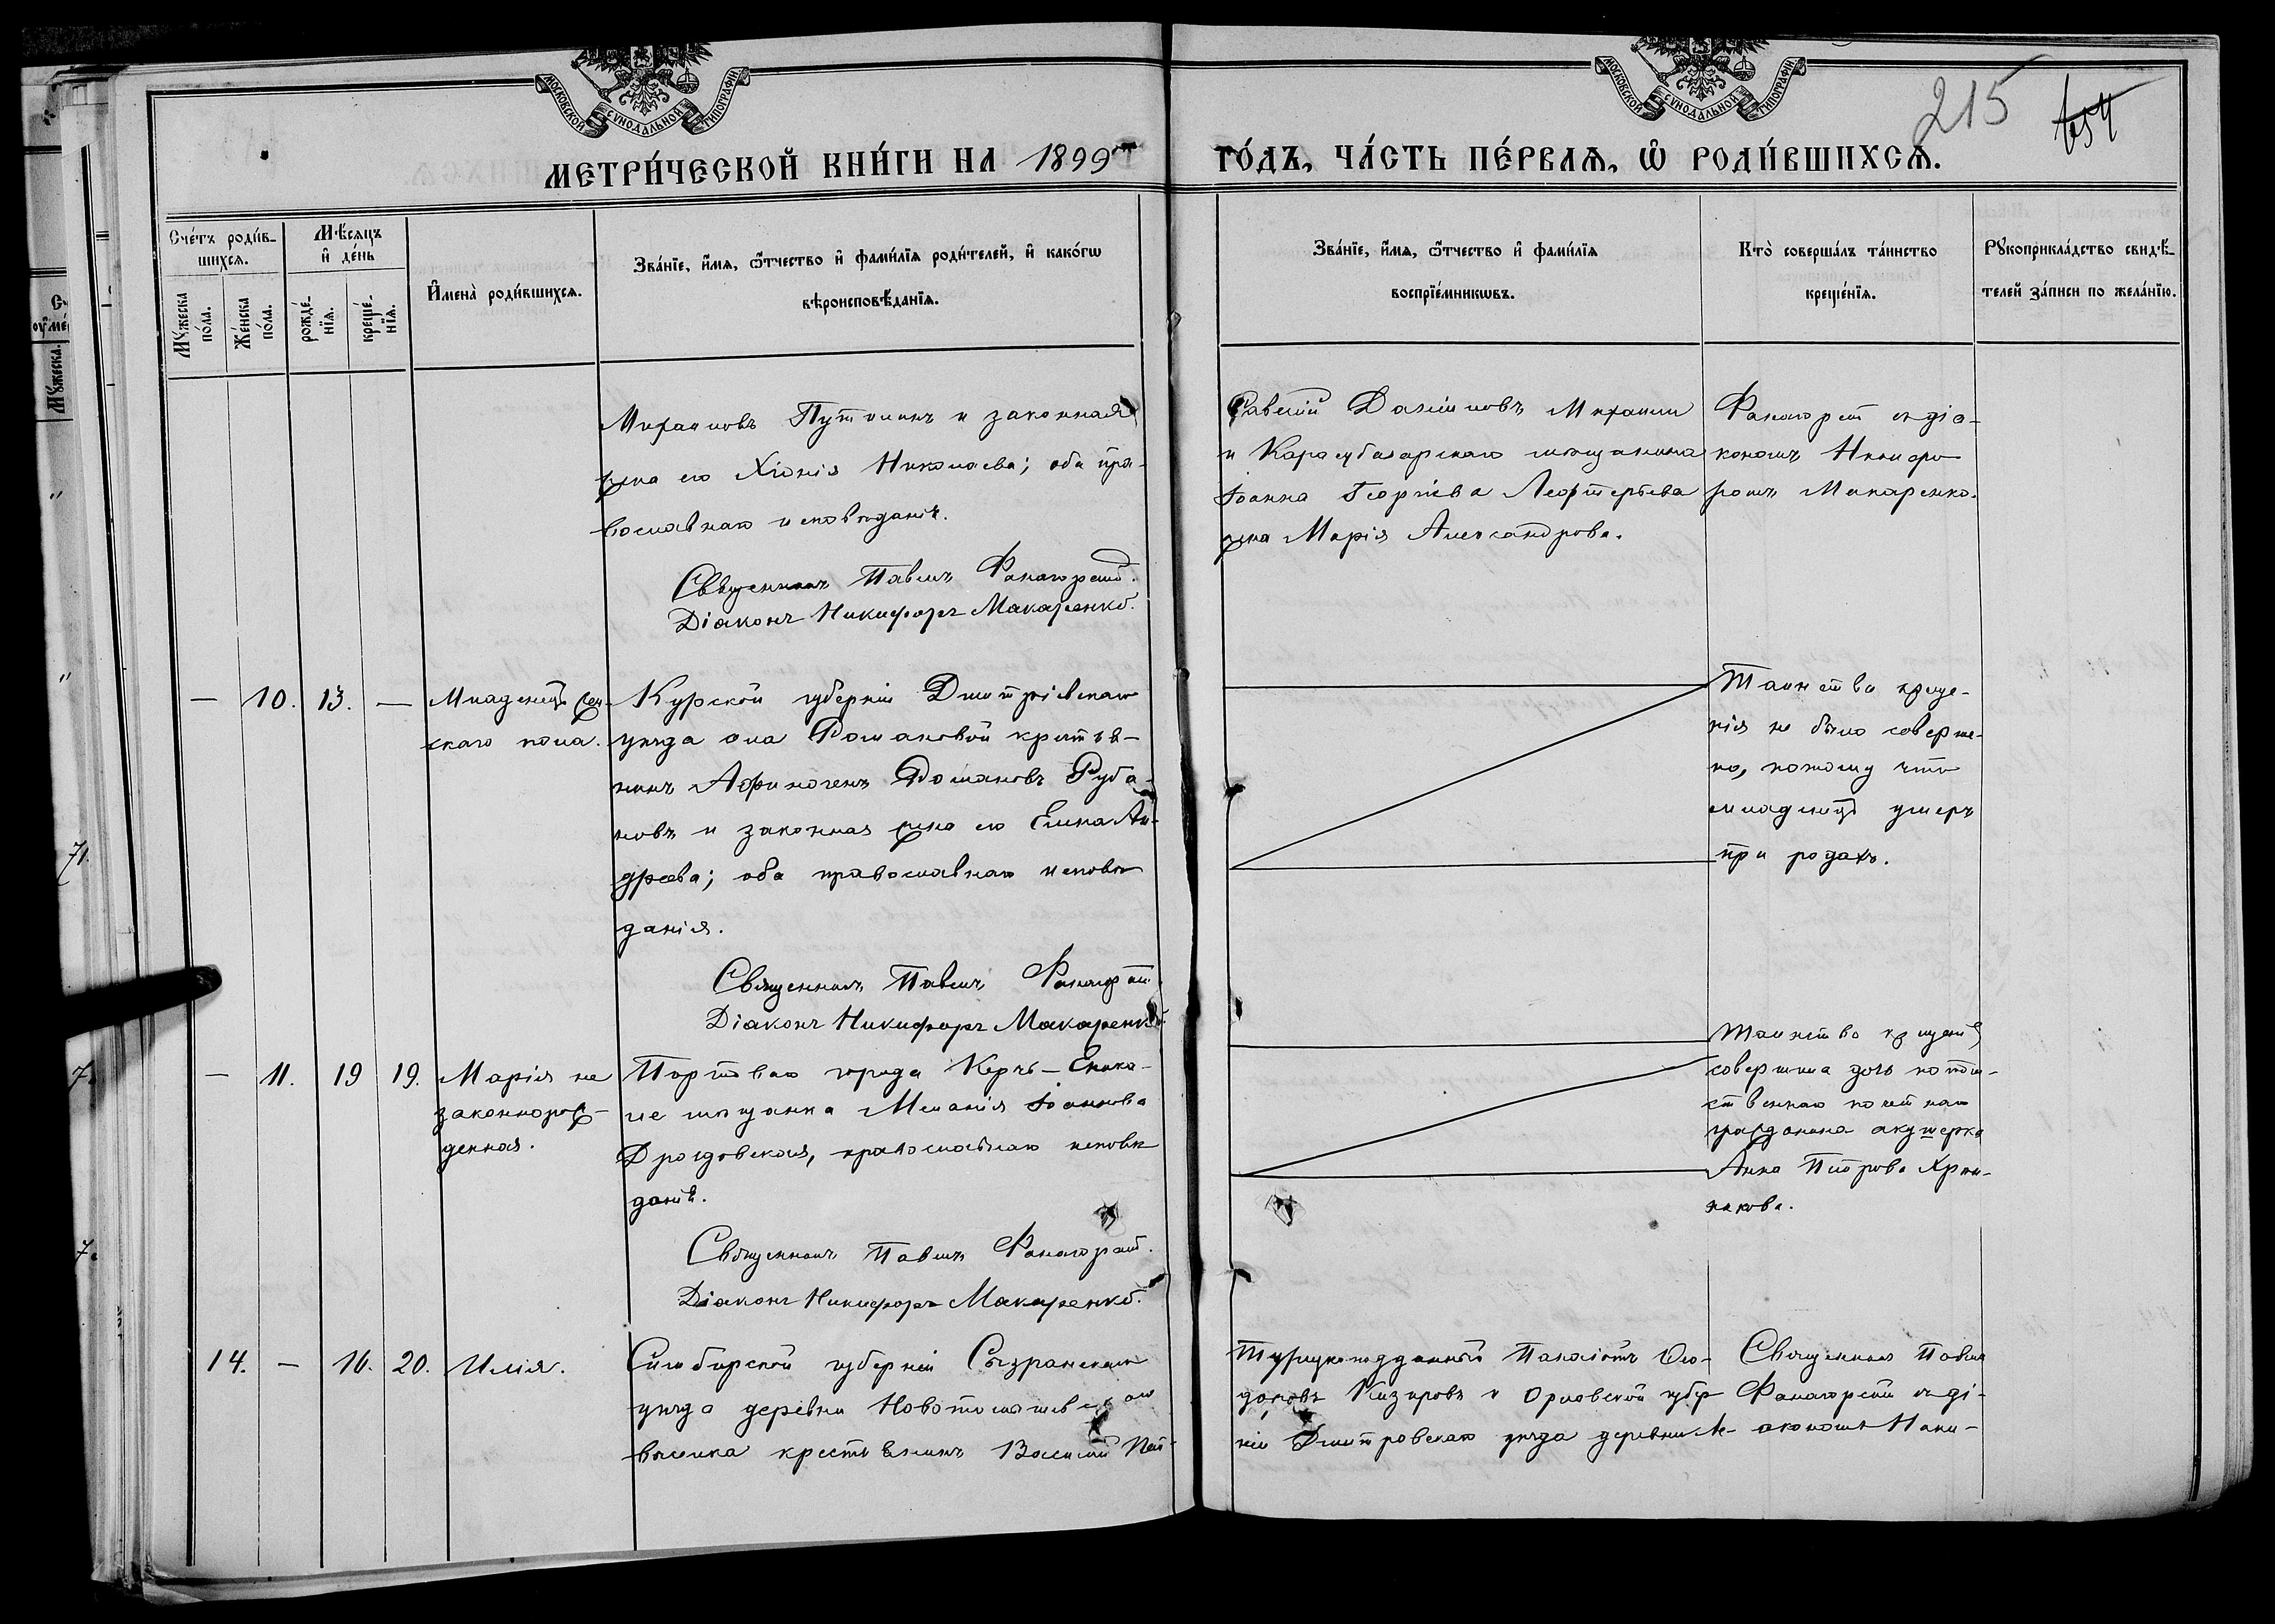 МОСКОВСКОЙ СѴНОДАЛЬНОЙ ТИПОГРАФІИ
МОСКОВСКОЙ СѴНОДАЛЬНОЙ ТИПОГРАФІИ
215
МЕТРИ́ЧЕСКОЙ КНИ́ГИ НА 1899
ГО́ДЪ, ЧА́СТЬ ПЕ́РВАѦ, Ѽ РОДИ́ВШИХСѦ.
Сче́тъ роди́в-
шихсѧ.
Мꙋ́жеска
по́ла.
Же́нска
по́ла.
Мѣ́сѧцъ
и҆ де́нь
рожде́-
нїѧ.
креще́-
нїѧ.
И҆мена̀ роди́вшихсѧ.
Зва́нїе, и҆́мѧ, ѻ҆́тчество и҆ фами́лїѧ роди́телей, и҆ како́гѡ
вѣроисповѣ́данїѧ.
Зва́нїе, и҆́мѧ, ѻ҆́тчество и҆ фами́лїѧ
воспрїе́мникѡвъ.
Кто̀ соверша́лъ та́инство
креще́нїѧ.
Рꙋкоприкла́дство свидѣ́-
телей за́писи по жела́нїю.
Михаиловъ Путилинъ и законная
жена его Хіонія Николаева; оба пра-
вославнаго исповѣданія.
Священникъ Павелъ Фанагорскій.
Діаконъ Никифоръ Макаренко.
Савелій Даниловъ Михаили
и Карасубазарскаго мѣщанина
Іоанна Георгіева Лефтерьева
жена Марія Александрова.
Фанагорскій съ діа-
кономъ Никифо
ромъ Макаренко.
— 10. 13. — Младенецъ жен-
скаго пола.
Курской губерніи Дмитріевскаго
уѣзда села Романовой крестья-
нинъ Афиногенъ Романовъ Руба-
новъ и законная жена его Елена Ан-
дреева; оба православнаго исповѣ
данія.
Священникъ Павелъ Фанагорскій
Діаконъ Никифоръ Макаренко.
Таинство креще-
нія не было соверше-
но, потому что
младенецъ умеръ
при родахъ.
— 11. 19 19. Марія не
законнорож-
денная.
Портоваго города Керчь-Енико-
ле мѣщанка Меланія Іоаннова
Дроздовская, православнаго исповѣ
данія.
Священникъ Павелъ Фанагорскій.
Діаконъ Никифоръ Макаренко.
Таинство крещенія
совершила дочь потом-
ственнаго почетнаго
гражданина акушерка
Анна Петрова
14. — 16. 20. Илія.
Симбирской губерніи Сызранскаго
уѣзда деревни
выселка крестьянинъ Василій
Турецкоподданный Панаіотъ Ѳео-
доровъ Кизировъ и Орловской губер
ніи Дмитровскаго уѣзда деревни
Священникъ Павелъ
Фанагорскій съ ді-
акономъ Ники-